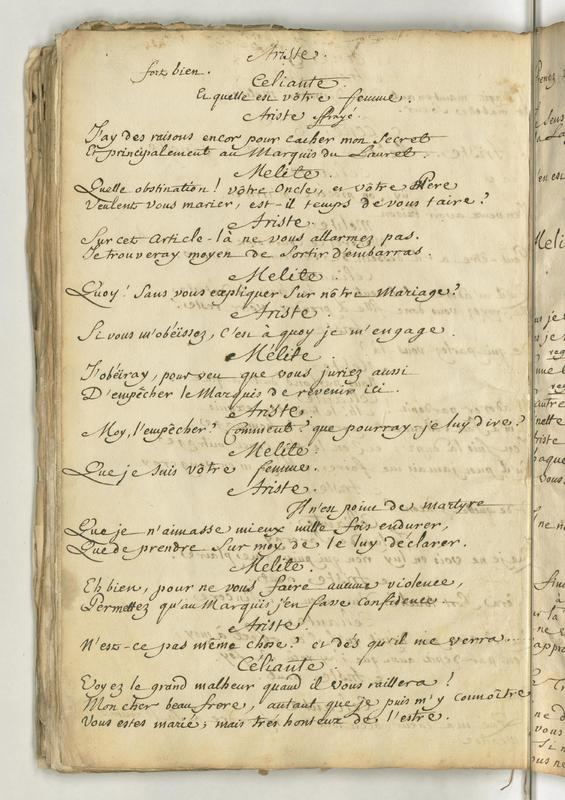 Ariste.
fort bien.
Celiante.
Et quelle est vôtre femme.
Ariste effrayé.
J'ay des raisons encor pour cacher mon Secret
Et principalement au Marquis du Lauret.
Melite.
Quelle obstination! vôtre Oncle, et vôtre Pere
Veulent vous marier, est-il temps de vous taire?
Ariste.
Sur cet Article-là ne vous allarmez pas.
Je trouveray moyen de Sortir d'embarras.
Melite
Quoy! Sans vous expliquer Sur nôtre Mariage?
Ariste.
Si vous m'obéissez, C'est à quoy je m'engage.
Mélite.
J'obéiray, pourveu que vous juriez aussi
D'empêcher le Marquis de revenir ici.
Ariste.
Moy, l'empêcher? Comment? que pourray-je luy dire?
Melite.
Que je suis vôtre femme.
Ariste.
Il n'est point de martyre
Que je n'aimasse mieux mille fois endurer,
Que de prendre Sur moy de le luy déclarer.
Melite.
Eh bien, pour ne vous faire aucune violence,
Permettez qu'au Marquis j'en fasse Confidence.
Ariste.
N'est-ce pas même chose? et dés qu'il me verra....
Céliante.
Voyez le grand malheur quand il vous raillera!
Mon cher beau frere, autant que je puis m'y connoître
Vous estes marié; mais tres honteux de l'estre.